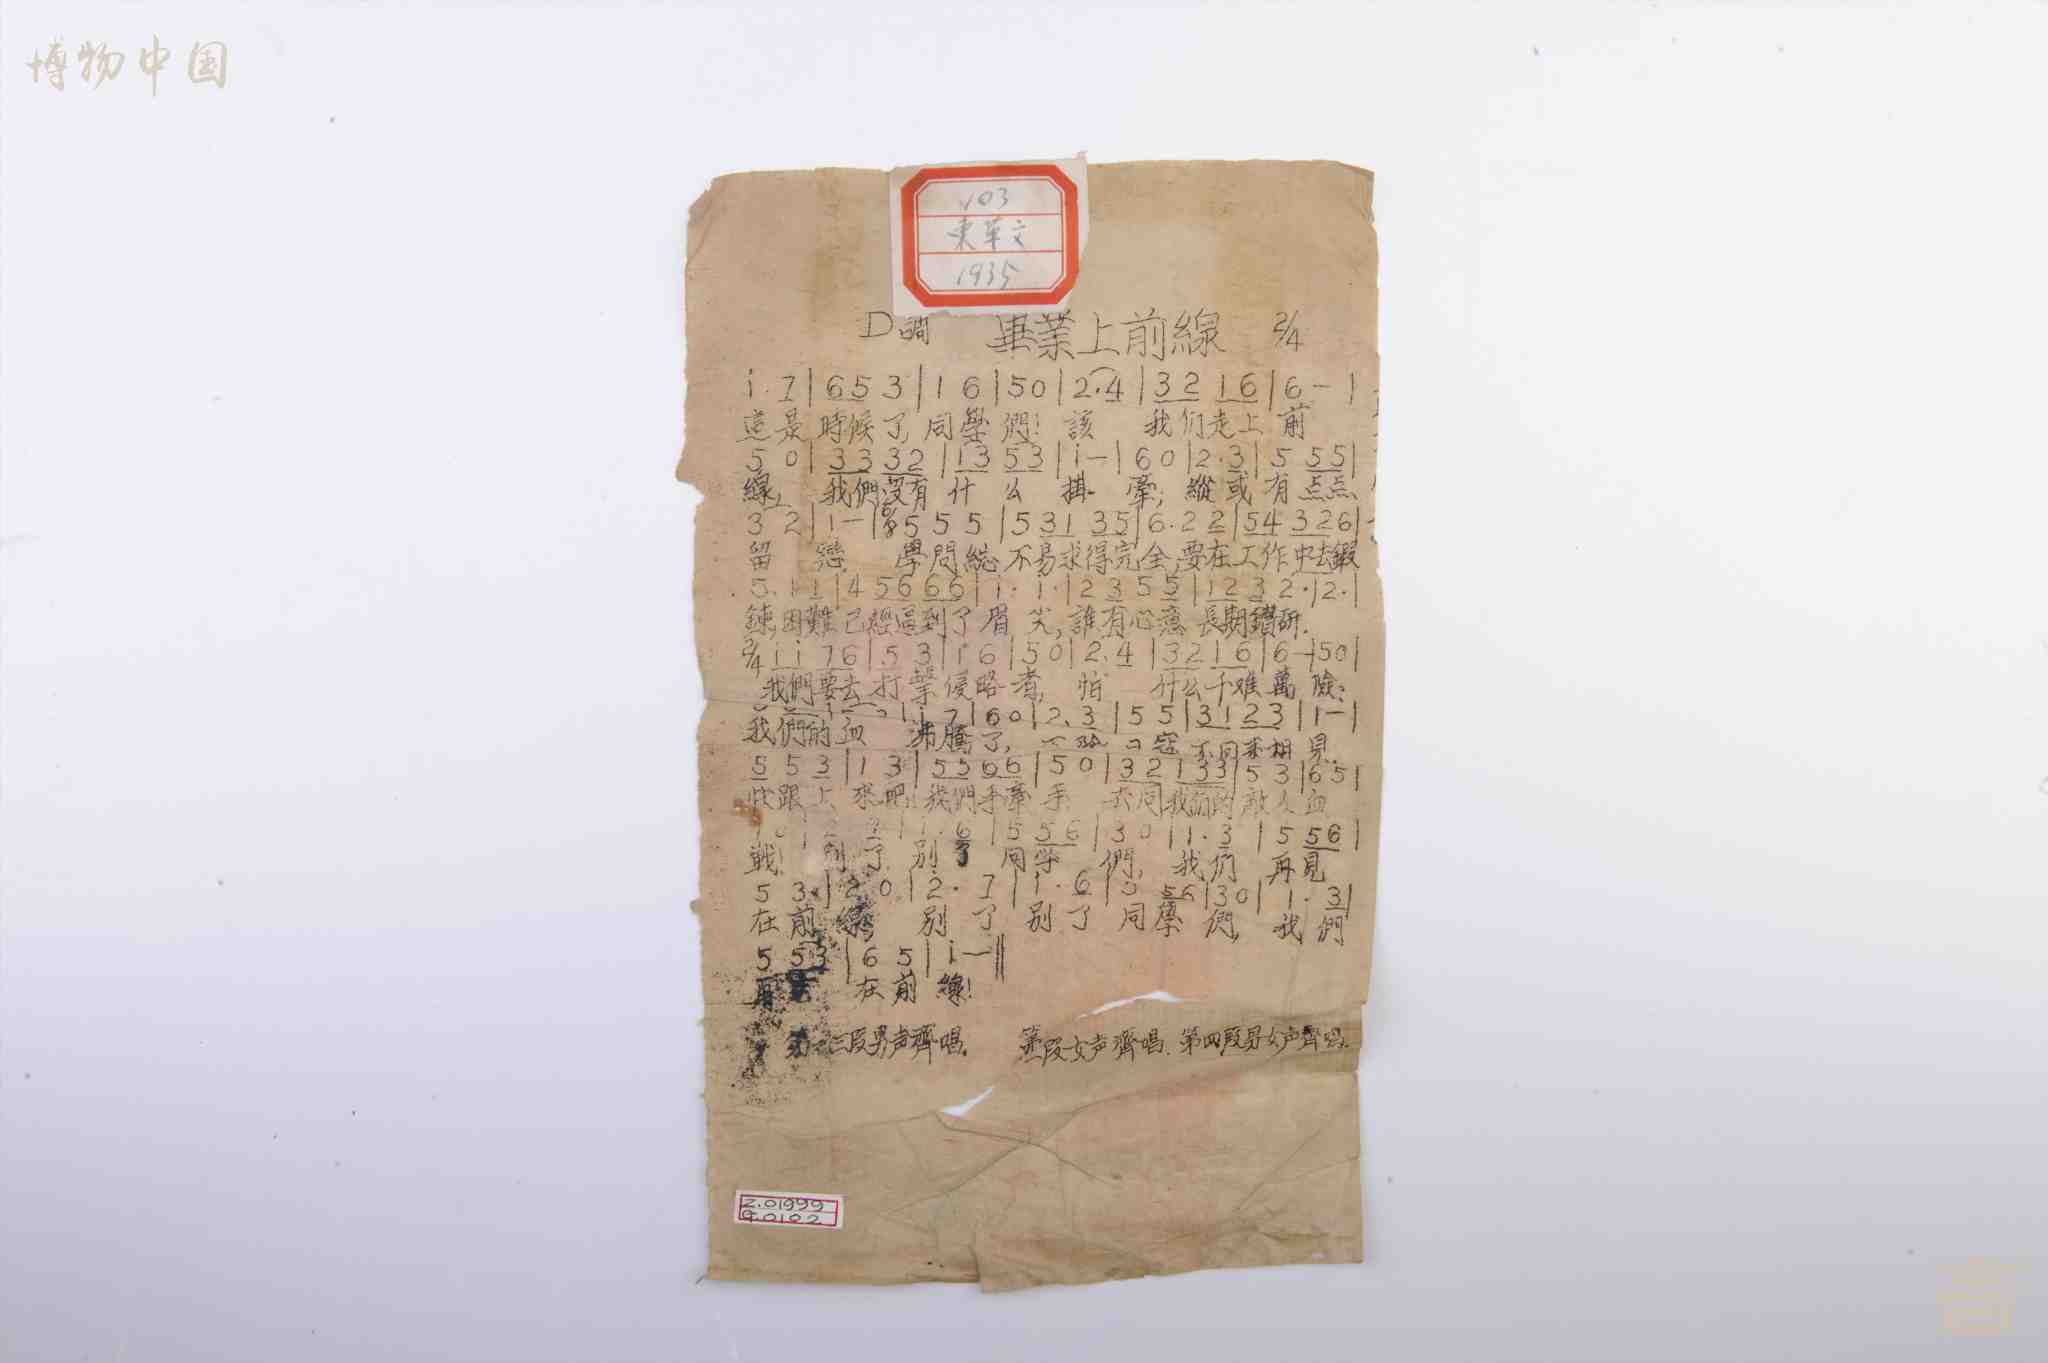 博物中国
103
1935
D調 畢業上前線 2/4
i. 7 | 65 3 | 1 6 | 50 | 2.4 | 32 16 | 6 — |
這是時候了,同學們!該 我们走上前
5 0 | 33 32 | 13 53 | i — | 60 | 2.3 | 5 55 |
線, 我們沒有什么掛牽;縱或有点点
3 2 | 1 — | 6/8 5 5 5 | 5 31 35 | 6.2 2 | 54 326 |
留戀 學問總不易求得完全,要在工作中去鍛
5. 1 1 | 4 56 66 | i. i. | 2 3 5 5 | 12 3 2. | 2. |
鍊,困難已經逼到了眉尖,誰有心意長期鑽研.
2/4 ii 76 | 5 3 | 1 6 | 50 | 2. 4 | 32 16 | 6 — | 50 |
我們要去打擊侵略者, 怕什么千难萬險;
i 7 | 60 | 2. 3 | 5 5 | 31 23 | 1 — |
我們的血沸騰了, 不 回来相見.
5 5 3 | 1 3 | 55 66 | 5 0 | 32 133 | 5 3 | 65 |
快跟上來吧!我們手牽手 去同我們的敵人血
1. 6 | 5 56 | 30 | 1. 3 | 5 56 |
戰! 別了別了同学們, 我們再見
5 3. | 2 0 | 2. 7 | 1. 6 | 56 | 30 | 1. 3 |
在前線, 別了別了同學們, 我們
5 53 | 6 5 | i — ||
再見 在前線!
三段男声齊唱. 段女声齊唱. 第四段男女声齊唱.
Z.01999
9.0102